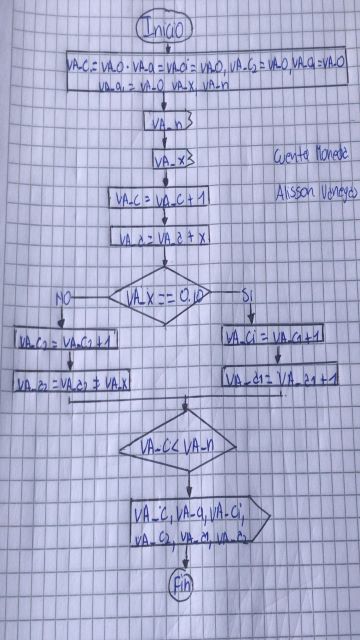 Inicio
VA_C = VA_0 · VA_a = VA_0 i = VA_0, VA_C2 = VA_0, VA_a = VA_0
VA_a1 = VA_0 VA_X, VA_n
VA_n
VA_x
Cuenta Moneda
VA_C = VA_C + 1
Alisson Venegas
VA_a = VA_a + x
VA_X == 0.10
NO
Si
VA_C2 = VA_C2 + 1
VA_Ci = VA_C1 + 1
VA_a2 = VA_a2 + VA_X
VA_a1 = VA_a1 + 1
VA_C < VA_n
VA_C, VA_a, VA_Ci,
VA_C2, VA_a1, VA_a2
Fin